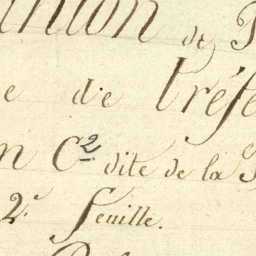 de
e de Tréfe
n C.e dite de la
2.e feuille.